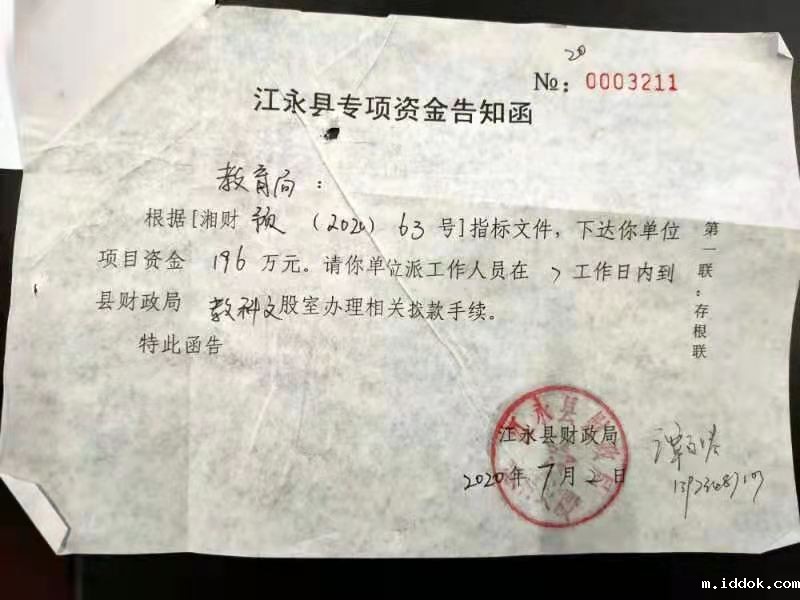 20
№: 0003211
江永县专项资金告知函
教育局：
根据[湘财预（2020）63号]指标文件，下达你单位
项目资金196万元。请你单位派工作人员在7工作日内到
县财政局教科文股室办理相关拨款手续。
特此函告
第一联：存根联
江永县财政局
2020年7月2日
m.iddok.com